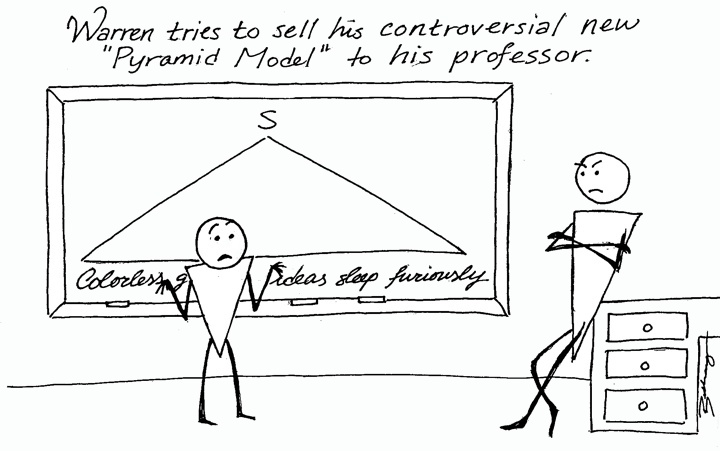 Warren tries to sell his controversial new
"Pyramid Model" to his professor.
S
Colorless g ideas sleep furiously